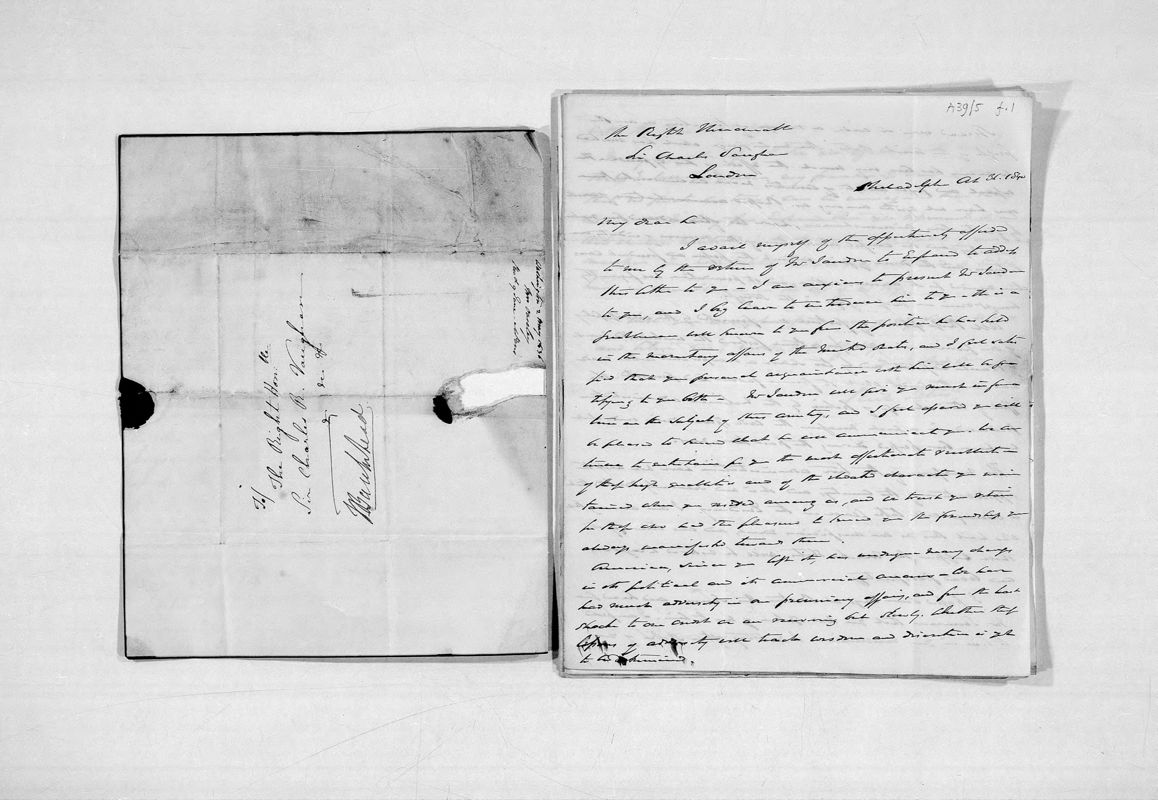 To/
The Right Hon. ble
Sir Charles R. Vaughan
&c &c &c
Washington 2 May 1831
A39/5 f.1
The Right Honourable
Sir Charles Vaughan
London
Philadelph Oct 31. 1840
My dear Sir
I avail myself of the opportunity afford
to me by the return of Mr Jaudon to England to address
this letter to you – I am anxious to present Mr Jaudon
to you, and I beg leave to introduce him to you – He is a
gentleman well known to you from the position he has held
in the monetary affairs of the United States, and I feel satis
fied that your personal acquaintance with him will be gra
tifying to you both – Mr Jaudon will give you much informa
tion on the subject of this country, and I feel assured you will
be pleased to know that we all
to entertain for you the most affectionate recollection
of those high qualities and of the elevated character you main
tained when you resided among us, and we trust you retain
for those who had the pleasure to know you the friendship you
always manifested towards them.
America, since you left it, has undergone many changes
in its political and its commercial – We have
had much adversity in our pecuniary affairs, and from the last
shock to our credit we are recovering but slowly. Whether these
lessons of adversity will teach wisdom and discretion is yet
to be determined.